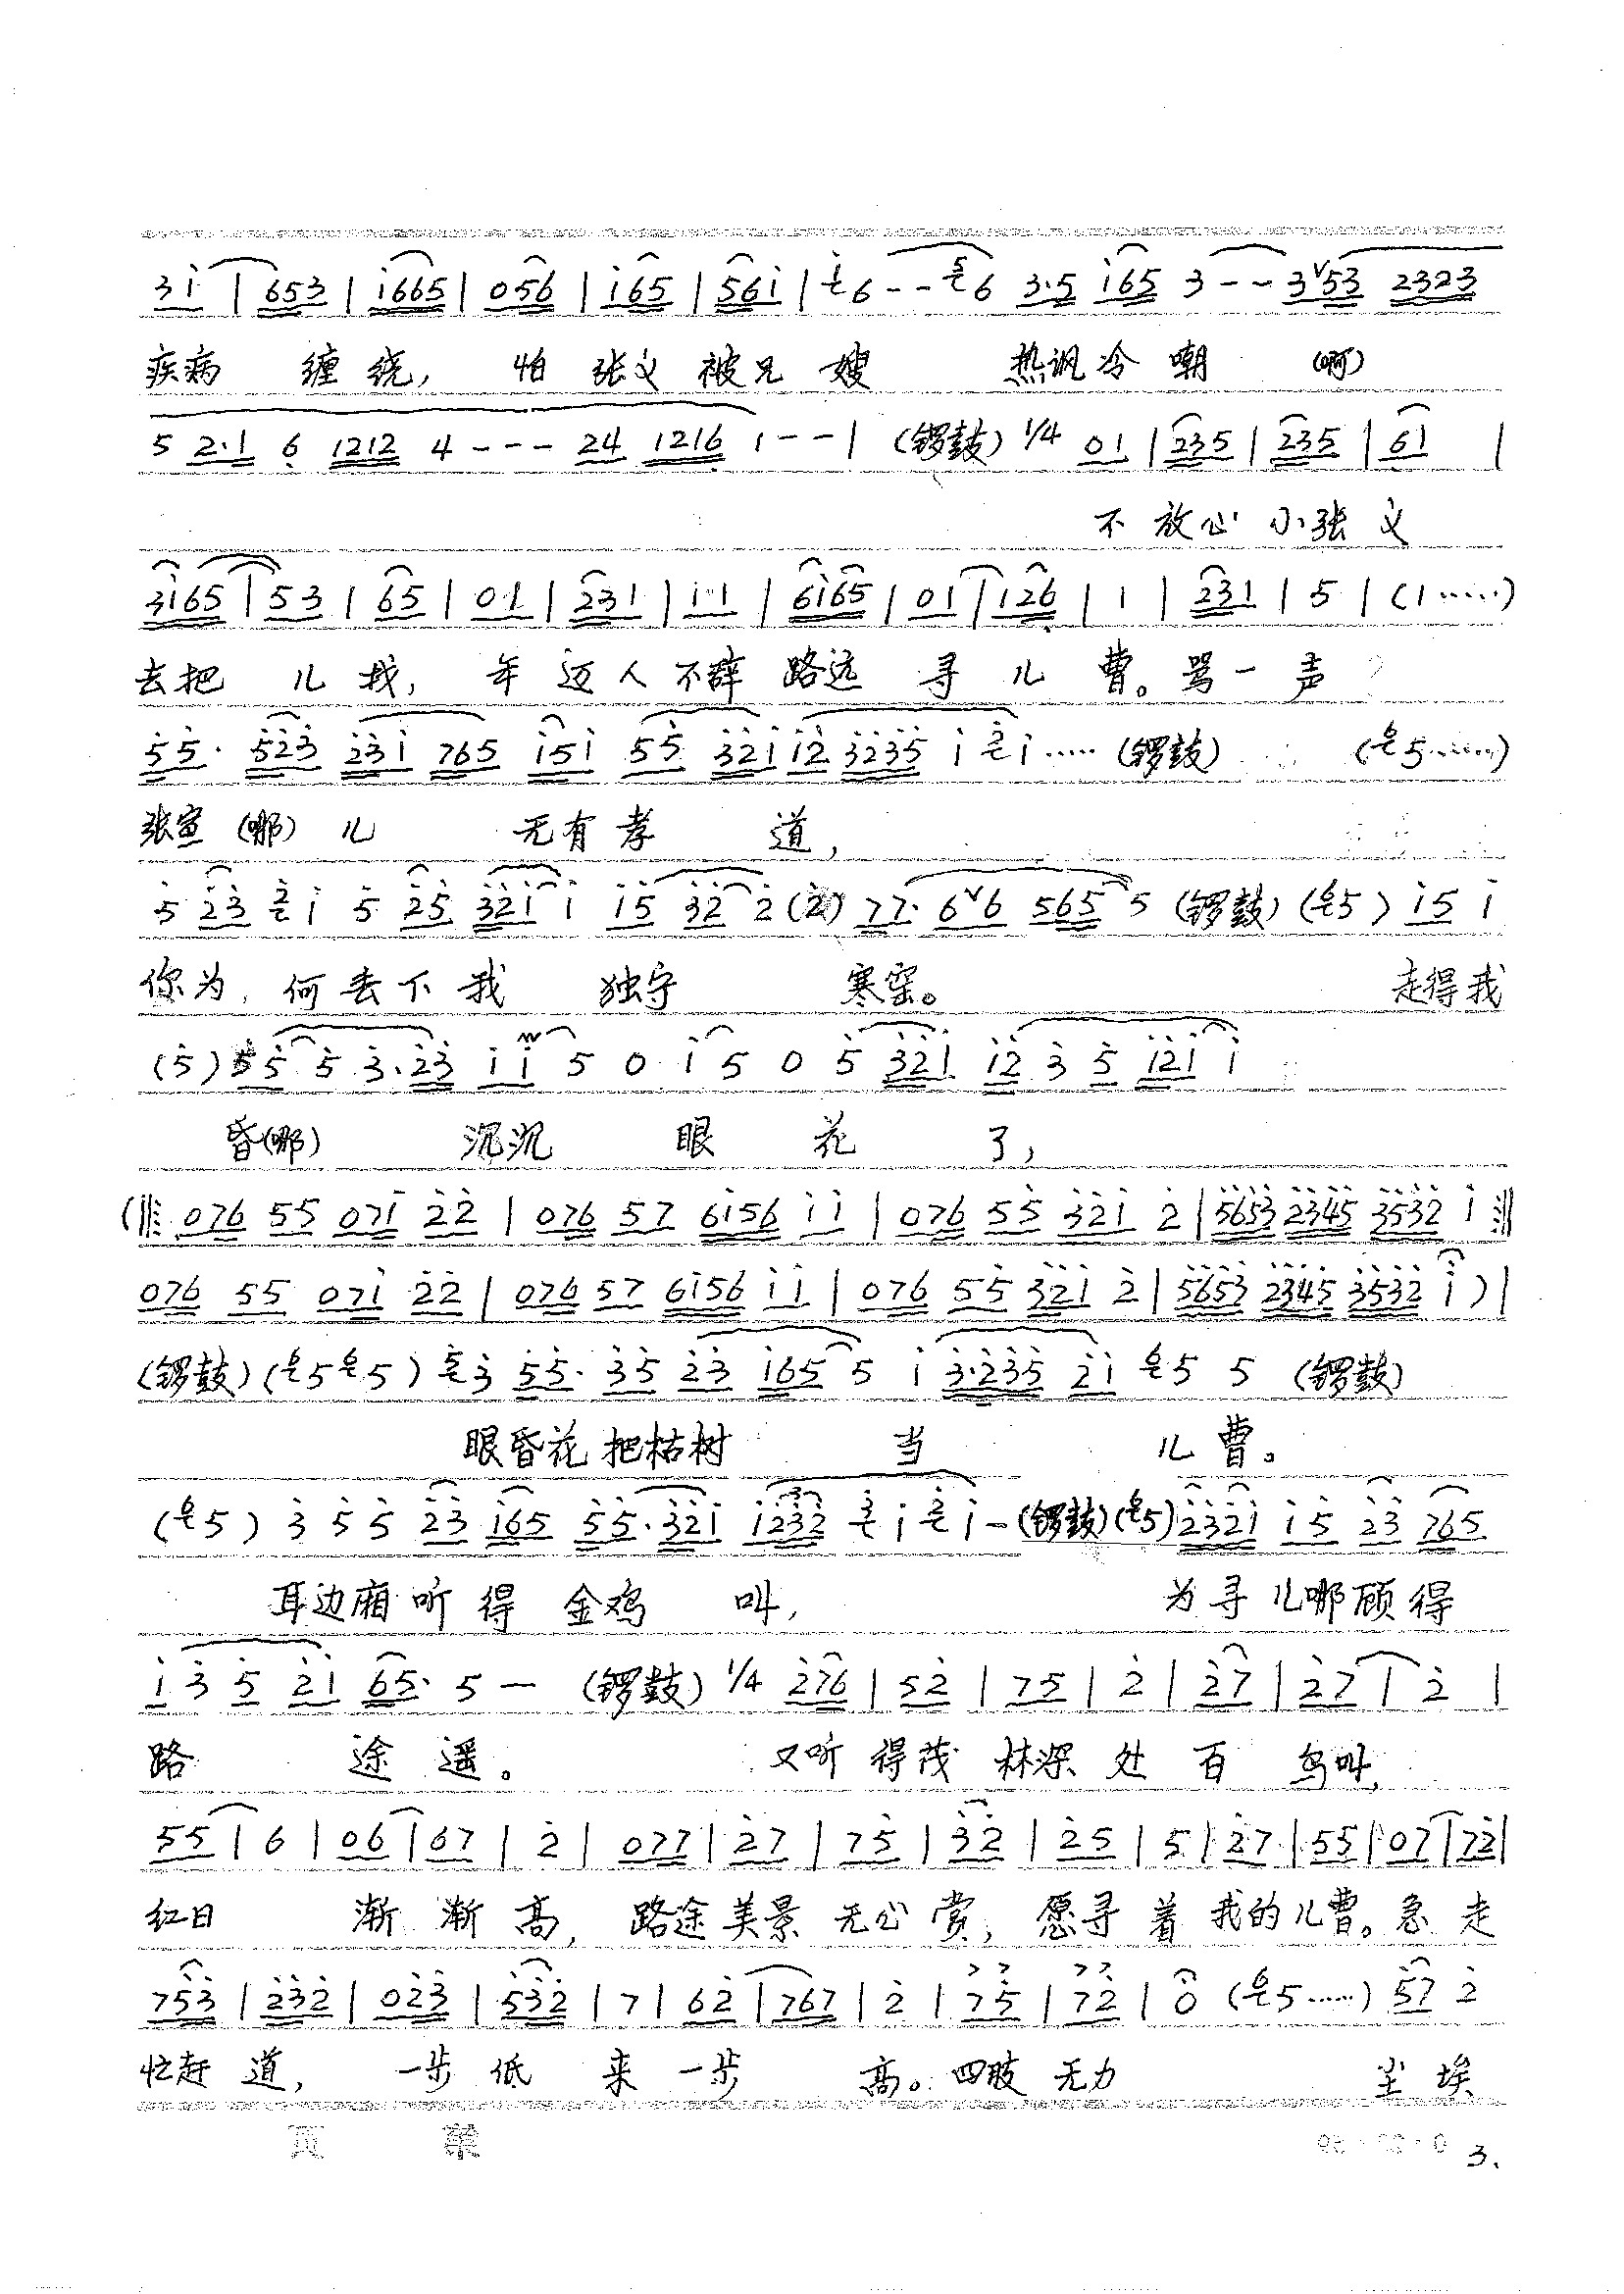 3i | 653 | i665 | 056 | i65 | 56i | i6 - - 56 3·5 i65 3 - - 3ᵛ53 2323
疾病 缠绕, 怕 张义被兄 嫂 热讽冷嘲 (啊)
5 2·1 6 1212 4 - - - 24 1216 1 - - | (锣鼓) 1/4 01 | 235 | 235 | 61 |
不放心小张义
3i65 | 53 | 65 | 01 | 231 | i·1 | 6i65 | 01 | 126 | 1 | 231 | 5 | (1……)
去把 儿 找, 年迈人不辞 路远 寻儿 曹。骂一声
55· 523 23i 765 i5i 55 32i i2 3235 i 2i…… (锣鼓) (65……)
张宣 (哪) 儿 无有孝 道,
5 23 2i 5 25 32i i i5 32 2 (2) 77· 6ᵛ6 565 5 (锣鼓) (65) i5 i
你为, 何丢下我 独守 寒窑。 走得我
(5) 55 5 3·23 i i 5 0 i 5 0 5 32i i2 3 5 i2i i
昏(哪) 沉沉 眼 花 了,
(‖: 076 55 07i 22 | 076 57 6i56 i i | 076 55 32i 2 | 5653 2345 3532 i :‖
076 55 07i 22 | 076 57 6i56 i i | 076 55 32i 2 | 5653 2345 3532 i ) |
(锣鼓) (65 65) 53 55· 35 23 i65 5 i 3·235 2i 65 5 (锣鼓)
眼昏花把枯树 当 儿曹。
(65) 3 5 5 23 i65 55·32i i232 3i 2i - (锣鼓) (65) 232i i5 23 765
耳边厢听得 金鸡 叫, 为寻儿哪顾得
i 3 5 2i 65· 5 — (锣鼓) 1/4 276 | 52 | 75 | 2 | 27 | 27 | 2 |
路 途遥。 又听得茂 林深处百鸟叫,
55 | 6 | 06 | 67 | 2 | 077 | 27 | 75 | 32 | 25 | 5 | 27 | 55 | 07 | 72 |
红日 渐渐高, 路途美景无心赏, 愿寻着我的儿曹。急走
753 | 232 | 023 | 532 | 7 | 62 | 767 | 2 | 75 | 72 | 0 (65……) 57 2
忙赶道, 一步低来一步 高。四肢无力 尘埃
页 第
3.